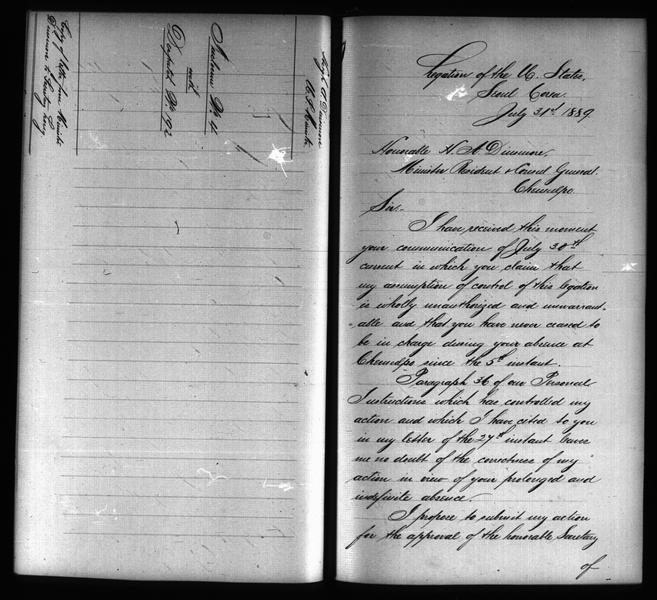 Copy of letter from Minister
Dinsmore to Secretary Long.
Inclosure No. 4
with
Despatch No. 192
Hugh A Dinsmore
U. S. Minister
Legation of the U. States,
Seoul Corea.
July 31st 1889.
Honorable H. A. Dinsmore,
Minister Resident & Consul General.
Chemulpo.
Sir:-
I have received this moment
your communication of July 30th
current in which you claim that
my assumption of control of this legation
is wholly unauthorized and unwarrant-
-able and that you have never ceased to
be in charge during your absence at
Chemulpo since the 5th instant.
Paragraph 36 of our Personal
Instructions which has controlled my
action and which I have cited to you
in my letter of the 27th instant leaves
me no doubt of the correctness of my
action in view of your prolonged and
indefinite absence.
I propose to submit my action
for the approval of the honorable Secretary
of